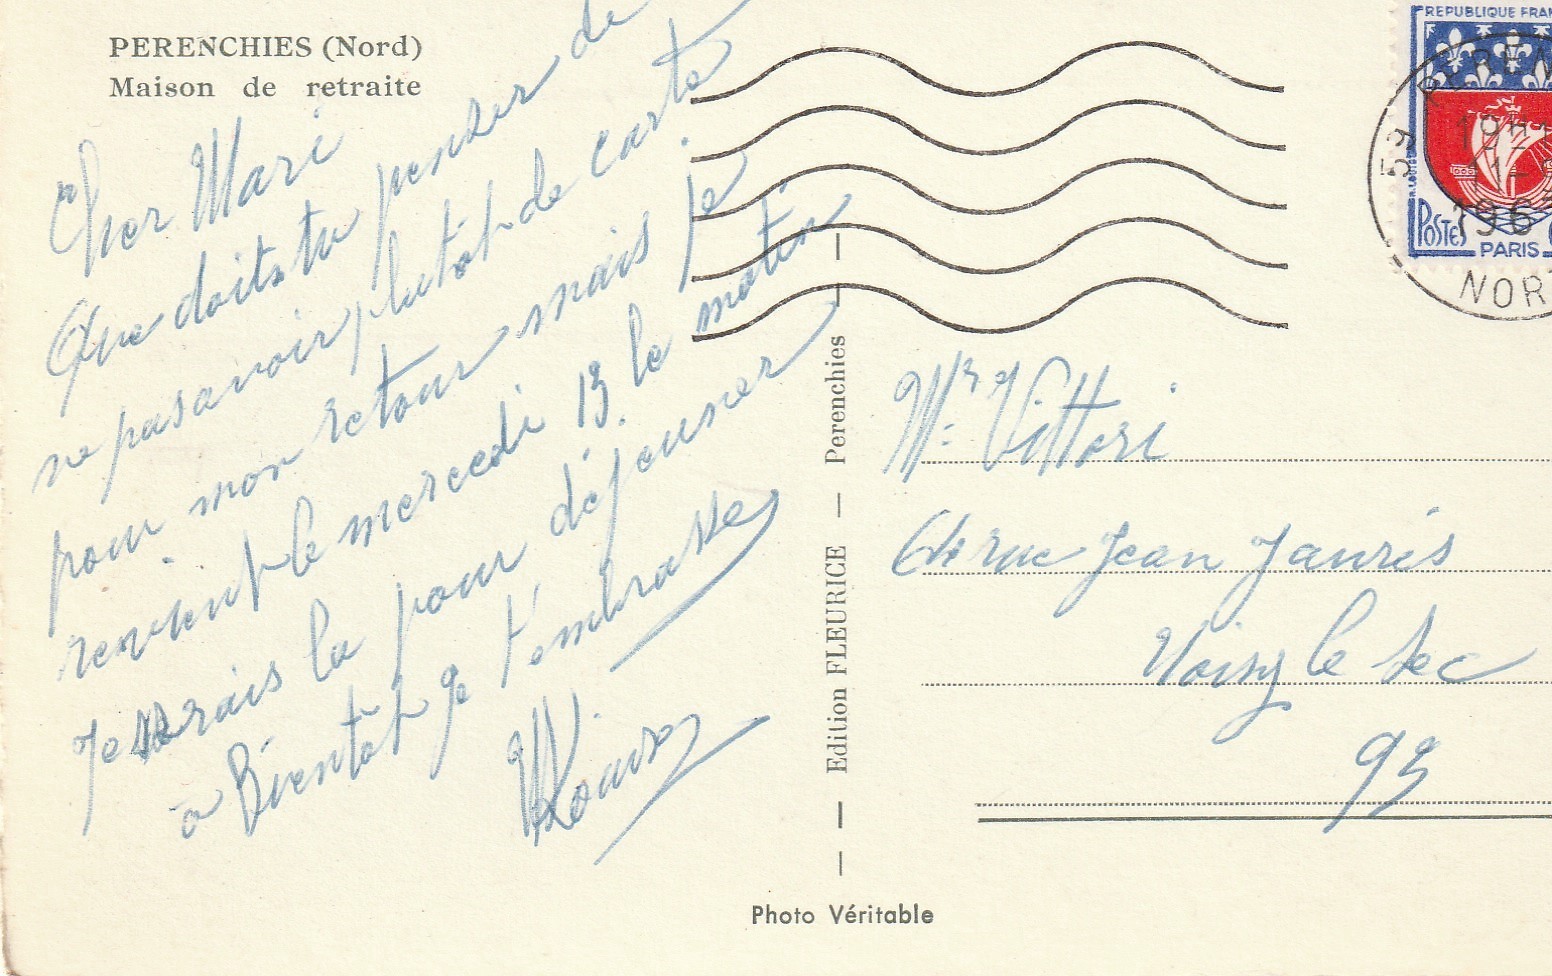 PERENCHIES (Nord)
Maison de retraite
Cher Mari
Que doits tu penser de
ne pas avoir plutôt de carte
pour mon retour mais je
revient le mercredi 13. le matin
je serais la pour déjeuner
a Bientôt je t'embrasse
Louise
Edition FLEURICE — Perenchies
REPUBLIQUE FRAN
POSTES
PARIS
59 PEREN
19H
11-
196
NOR
Mr. Vittori
rue Jean Jauris
Noisy le Sec
93
Photo Véritable